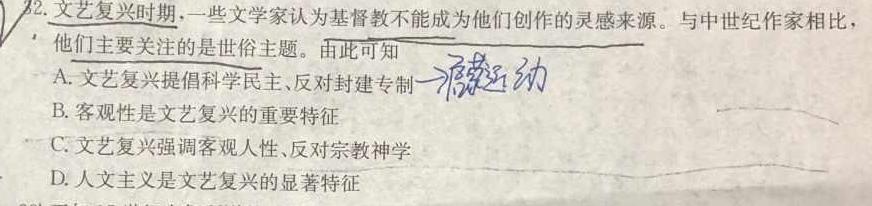 32. 文艺复兴时期,一些文学家认为基督教不能成为他们创作的灵感来源。与中世纪作家相比,
他们主要关注的是世俗主题。由此可知
A. 文艺复兴提倡科学民主、反对封建专制→启蒙运动
B. 客观性是文艺复兴的重要特征
C. 文艺复兴强调客观人性、反对宗教神学
D. 人文主义是文艺复兴的显著特征